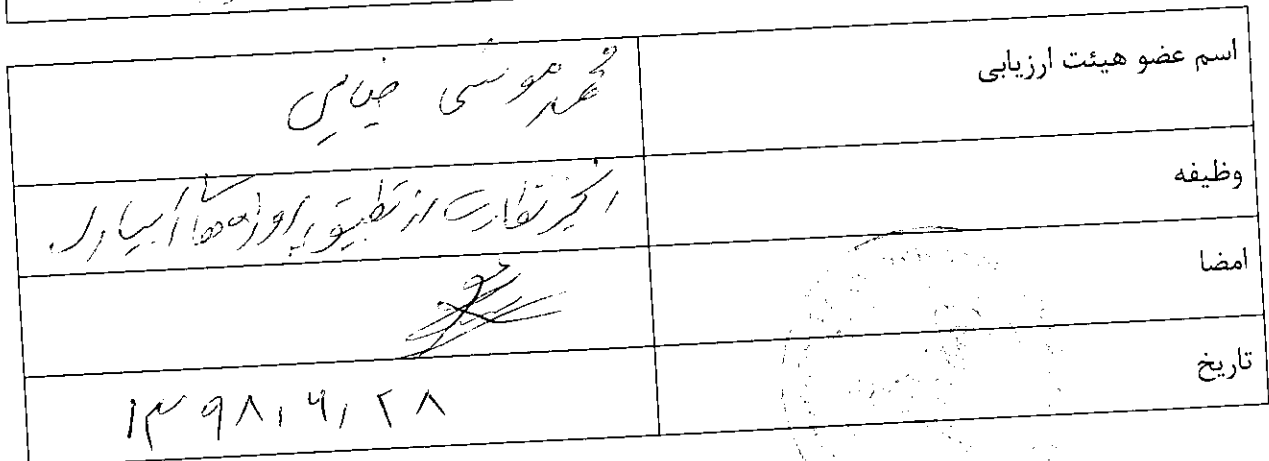 اسم عضو هیئت ارزیابی
محمد موسی ضیایی
وظیفه
انجنیر نظارت از تطبیق پروژه ها آبیاری
امضا
تاریخ
۱۳۹۸/۶/۲۸